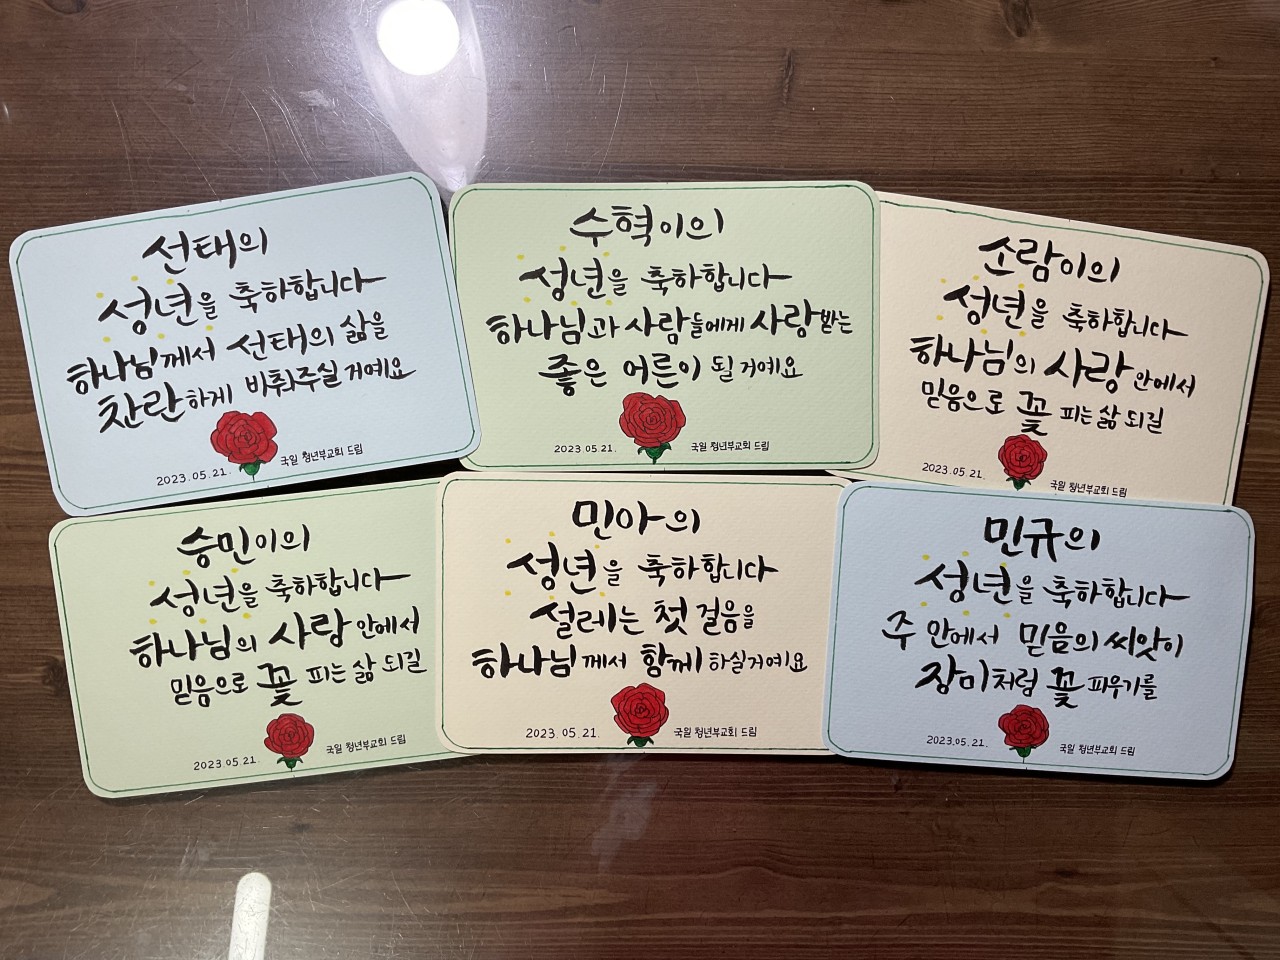 선태의
성년을 축하합니다
하나님께서 선태의 삶을
찬란하게 비춰주실 거예요
2023.05.21.
국일 청년부교회 드림
수혁이의
성년을 축하합니다
하나님과 사람들에게 사랑받는
좋은 어른이 될 거예요
2023.05.21.
국일 청년부교회 드림
소람이의
성년을 축하합니다
하나님의 사랑 안에서
믿음으로 꽃 피는 삶 되길
2023.05.21.
국일 청년부교회 드림
승민이의
성년을 축하합니다
하나님의 사랑 안에서
믿음으로 꽃 피는 삶 되길
2023.05.21.
국일 청년부교회 드림
민아의
성년을 축하합니다
설레는 첫 걸음을
하나님께서 함께 하실거예요
2023.05.21.
국일 청년부교회 드림
민규의
성년을 축하합니다
주 안에서 믿음의 씨앗이
장미처럼 꽃 피우기를
2023.05.21.
국일 청년부교회 드림